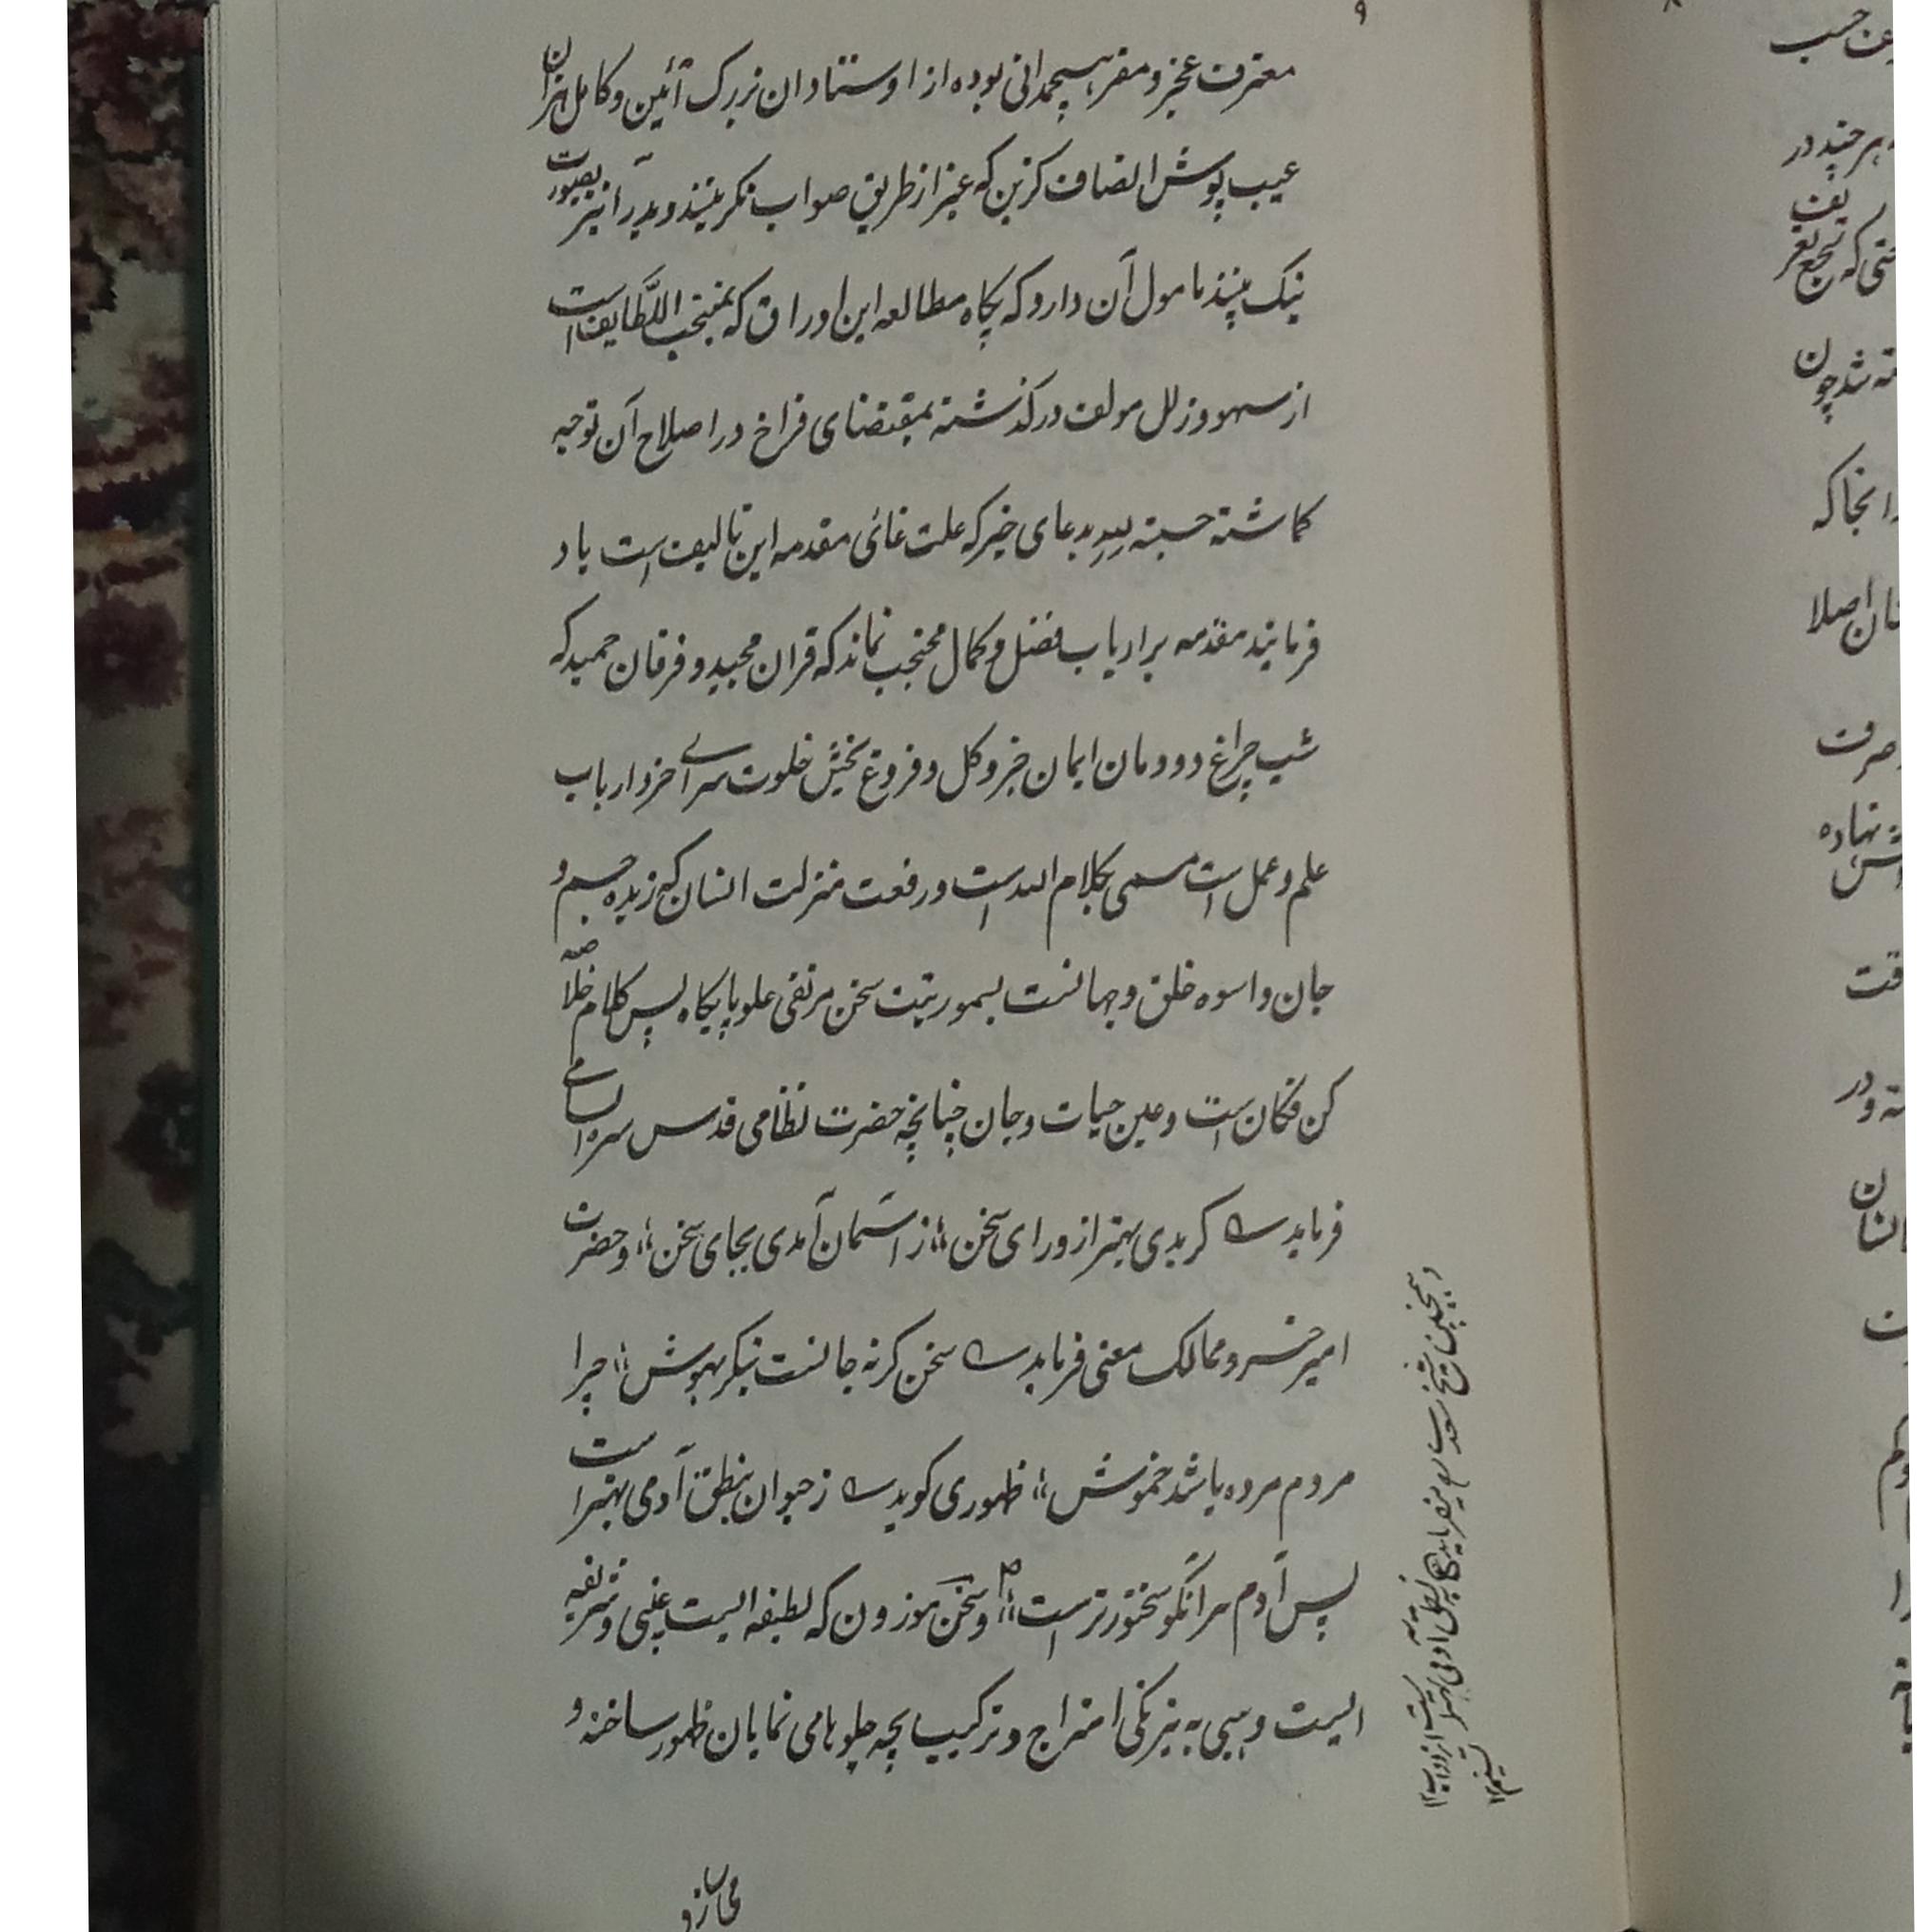 ۹
معترف عجز و مقر هیچمدانی بوده از اوستادان بزرگ آئین و کامل هنران
عیب پوش انصاف گزین که غیر از طریق صواب نگزینند و بد را نیز بصورت
نیک بینند مامول آن دارد که بگاه مطالعه این اوراق که بمنتخب اللطایف است
از سهو و زلل مولف در گذشته بمقتضای فراخ در اصلاح آن توجیه
گماشته حسبة لله بدعای خیر که علت غائی مقدمه این تالیف است یاد
فرمایند مقدمه بر ارباب فضل و کمال محتجب نماند که قران مجید و فرقان حمید که
شب چراغ دودمان ایمان جز و کل و فروغ بخش خلوت سرای خرد ارباب
علم و عمل است مسمی بکلام الله است و رفعت منزلت انسان که زبده جسم و
جان و اسوه خلق و جهانست بسموریتت سخن مرتقی علو پایگاه پس کلام خلاصه
کن فکان است و عین حیات و جان چنانچه حضرت نظامی قدس سره السامی
فرماید گر بدی بهتر از ورای سخن ؛؛ ز آسمان آمدی بجای سخن ؛؛ و حضرت
امیر خسرو ممالک معنی فرماید سخن گر نه جانست بنگر بهوش ؛؛ چرا
مردم مرده باشد خموش ؛؛ ظهوری گوید ز حیوان بنطق آدمی بهتر است
پس آدم تر آنکو سخنور تر است ؛؛ و سخن موزون که لطیفه ایست غیبی و شریفه
ایست وهبی به نیرنگی امتزاج و ترکیب بچه جلوهای نمایان ظهور ساخته و
و همچنین شیخ سعدی میفرماید بنطق آدمی بهتر است از دواب ۱۲